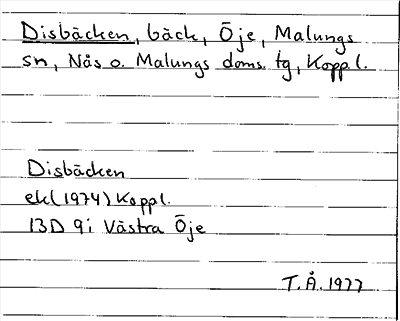 Disbäcken, bäck, Öje, Malungs
sn, Nås o. Malungs doms. tg, Koppl.
Disbäcken
ek (1974) Koppl.
13D 9i Västra Öje
T.Å. 1977